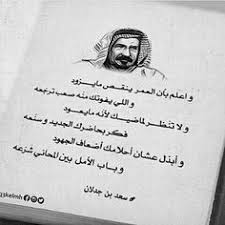 و اعلم بأن العمر ينقص مايزود
و اللي يفوتك منه صعب ترجعه
و لا تنظر لماضيك لأنه مايعود
فكر بحاضرك الجديد وسنعه
و أبذل عشان أحلامك أضعاف الجهود
و بـاب الأمل بين المحاني شرعه
# سعد بن جدلان
skelmh